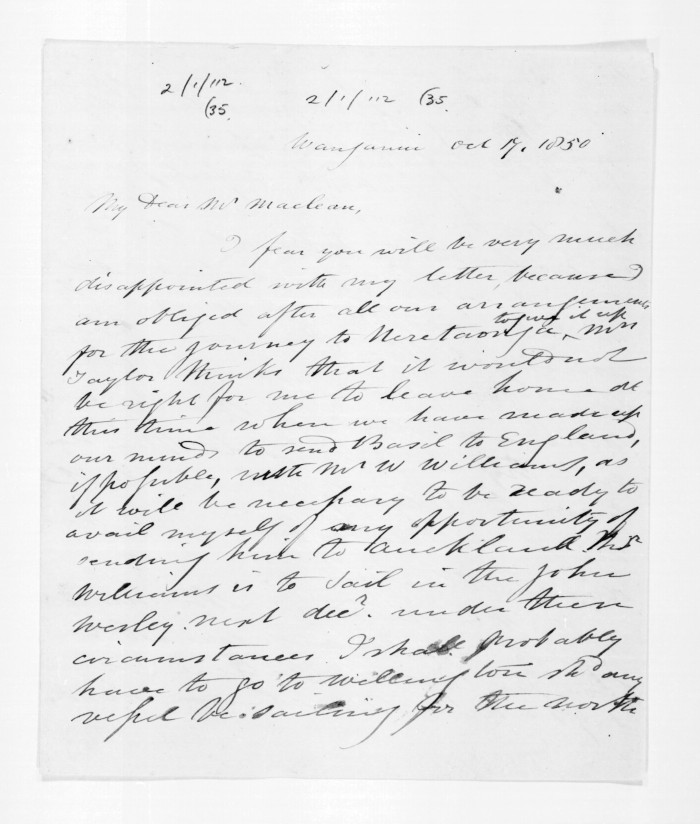 2/1/112. (35.
2/1/112 (35.
Wanganui Oct 17, 1850
My Dear Mr Maclean,
I fear you will be very much
disappointed with my letter, because I
am obliged after all our arrangements
for the journey to Heretaonga, to give it up Mrs
Taylor thinks that it would not
be right for me to leave home at
this time when we have made up
our minds to send Basil to England,
if possible, with Mr W Williams, as
it will be necessary to be ready to
avail myself of any opportunity of
sending him to Auckland. Mr
Williams is to sail in the John
Wesley next decr. under these
circumstances I shall probably
have to go to Wellington shd any
vessel be sailing for the north